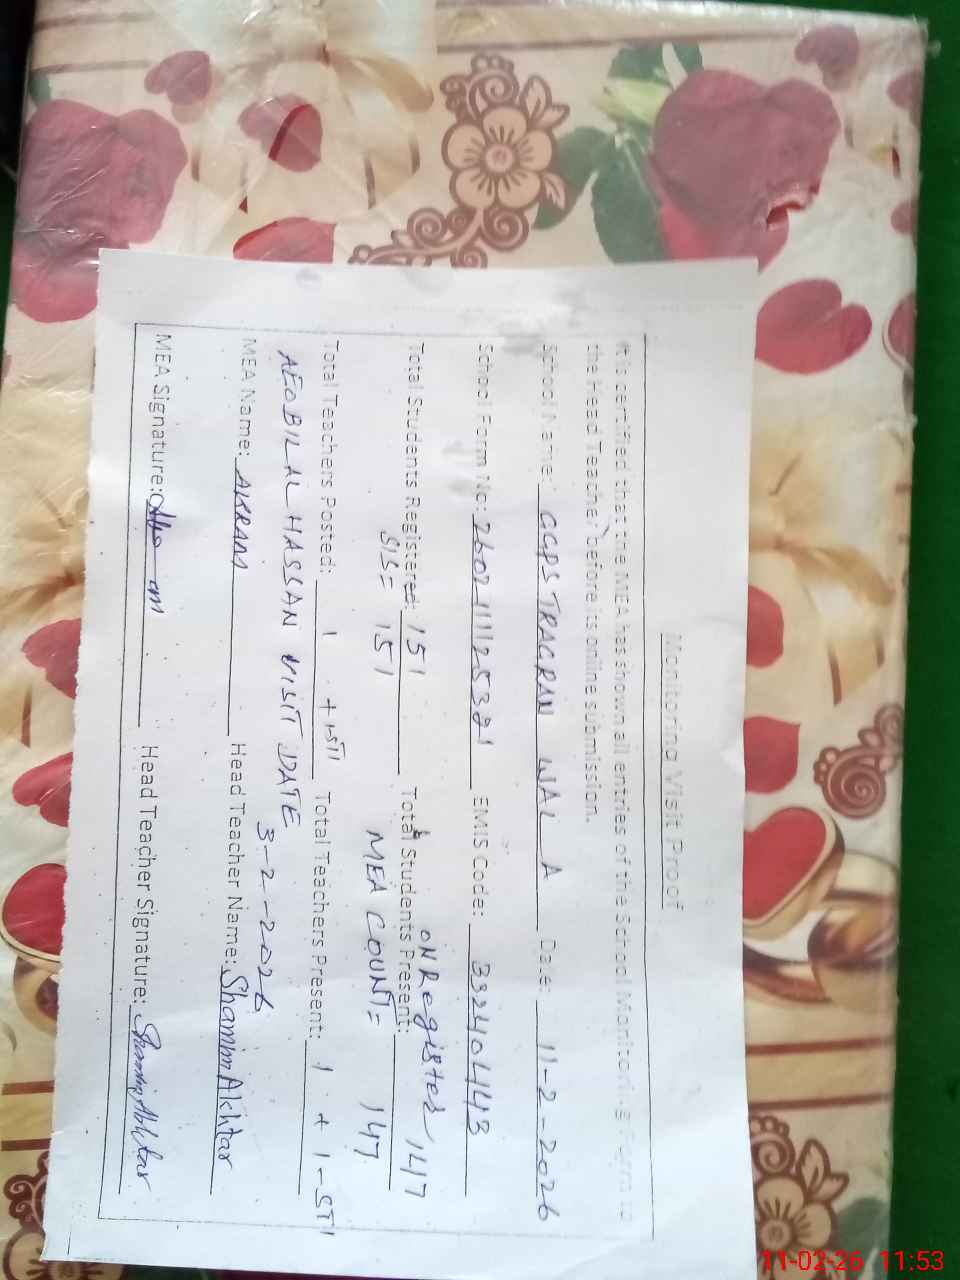 Monitoring Visit Proof
It is certified that the MEA has shown all entries of the School Monitoring Form to
the Head Teacher before its online submission.
School Name: GGPS TRAGRAN WALA Date: 11-2-2026
School Form No: EMIS Code: 33240443
Total Students Registered: 151 Total Students Present: ON Register 147
SIS= 151 MEA COUNT= 147
Total Teachers Posted: 1 + 1-STI Total Teachers Present: 1 + 1-STI
AEO BILAL HASSAN VISIT DATE 3-2-2026
MEA Name: AKRAM Head Teacher Name: Shamim Akhtar
MEA Signature: Head Teacher Signature: Shamim Akhtar
11-02-26 11:53